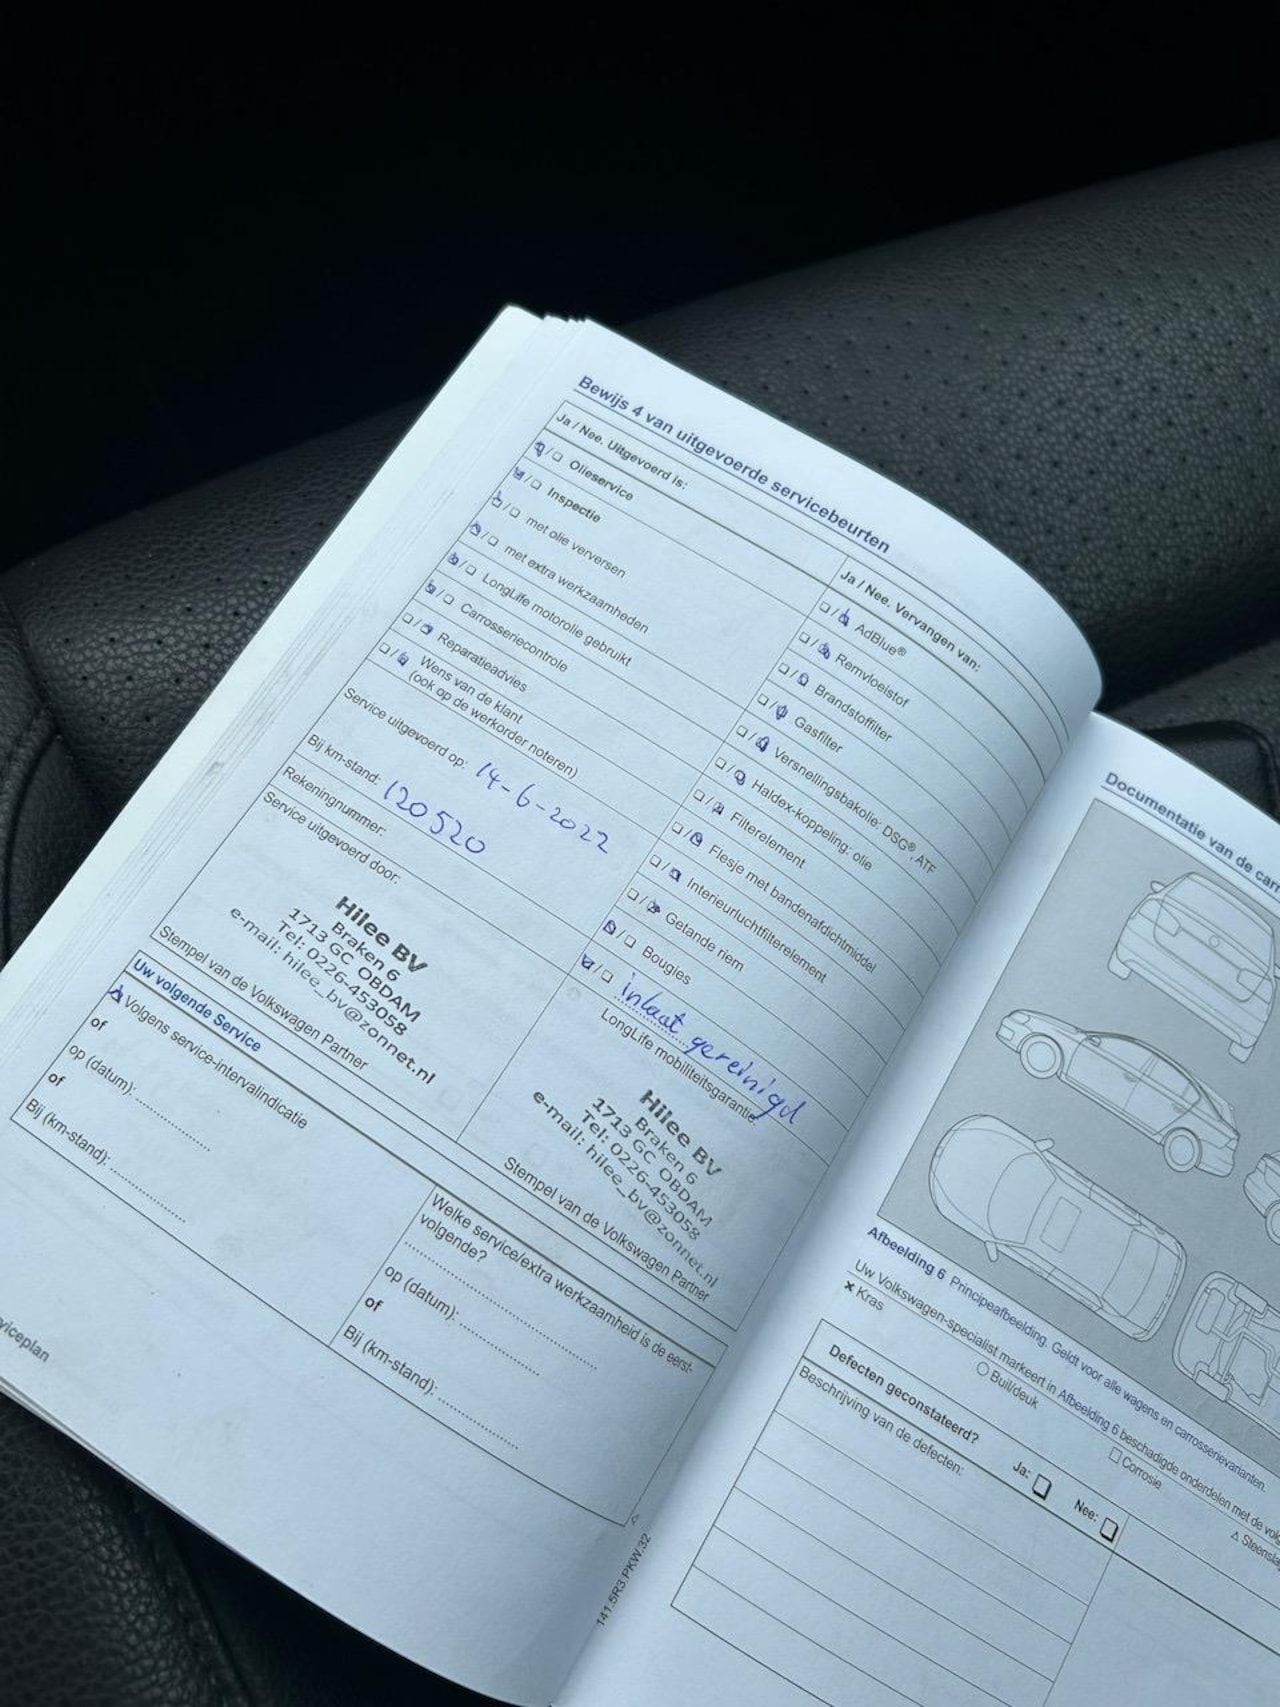 Bewijs 4 van uitgevoerde servicebeurten
Ja / Nee. Uitgevoerd is:
Olieservice
Inspectie
met olie verversen
met extra werkzaamheden
LongLife motorolie gebruikt
Carrosseriecontrole
Reparatieadvies
Wens van de klant
(ook op de werkorder noteren)
Service uitgevoerd op: 14-6-2022
Bij km-stand: 120520
Rekeningnummer:
Service uitgevoerd door:
Hilee BV
Braken 6
1713 GC OBDAM
Tel: 0226-453058
e-mail: hilee_bv@zonnet.nl
Stempel van de Volkswagen Partner
Ja / Nee. Vervangen van:
AdBlue®
Remvloeistof
Brandstoffilter
Gasfilter
Versnellingsbakolie: DSG®, ATF
Haldex-koppeling: olie
Filterelement
Flesje met bandenafdichtmiddel
Interieurluchtfilterelement
Getande riem
Bougies
inlaat gereinigd
LongLife mobiliteitsgarantie:
Hilee BV
Braken 6
1713 GC OBDAM
Tel: 0226-453058
e-mail: hilee_bv@zonnet.nl
Stempel van de Volkswagen Partner
Uw volgende Service
Volgens service-intervalindicatie
of
op (datum):
of
Bij (km-stand):
Welke service/extra werkzaamheid is de eerst-
volgende?
op (datum):
of
Bij (km-stand):
viceplan
141.5R3.PKW.32
Documentatie van de carr
Afbeelding 6 Principeafbeelding. Geldt voor alle wagens en carrosserievarianten.
Uw Volkswagen-specialist markeert in Afbeelding 6 beschadigde onderdelen met de volg
× Kras
Buil/deuk
Corrosie
Steensla
Defecten geconstateerd?
Ja:
Nee:
Beschrijving van de defecten: